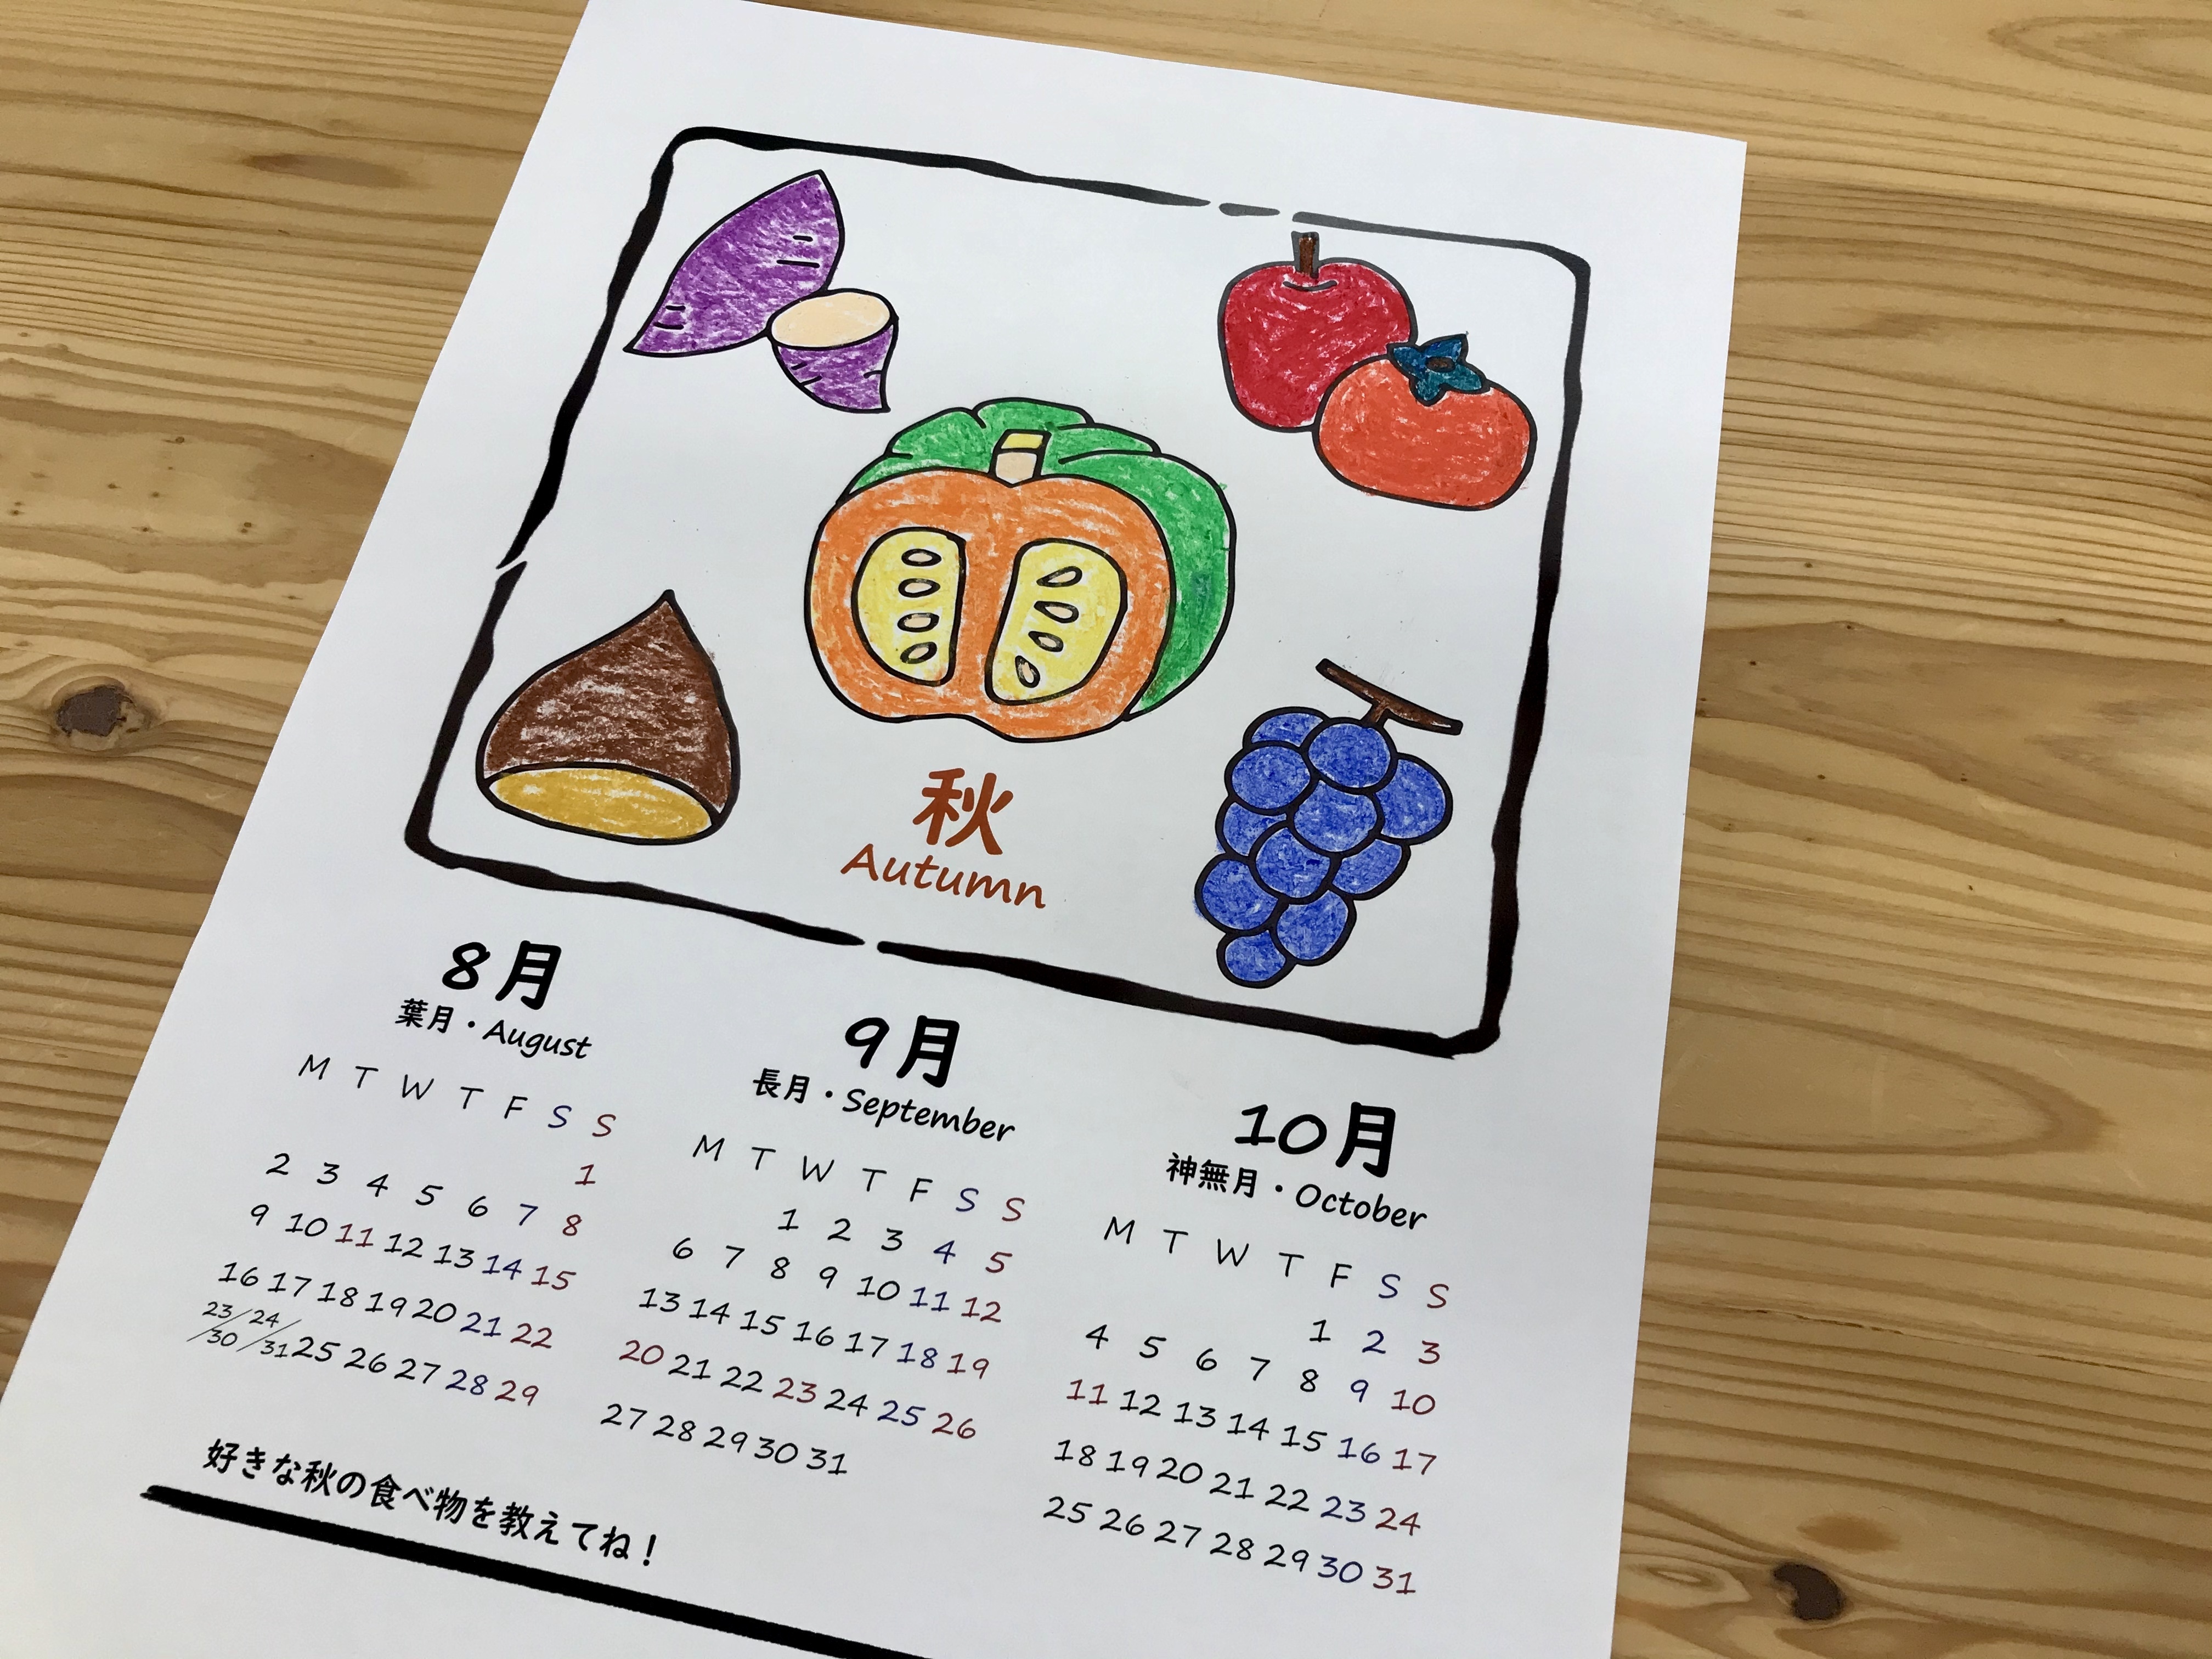 秋
Autumn
8月
葉月・August
M T W T F S S
1
2 3 4 5 6 7 8
9 10 11 12 13 14 15
16 17 18 19 20 21 22
23/30 24/31 25 26 27 28 29
9月
長月・September
M T W T F S S
1 2 3 4 5
6 7 8 9 10 11 12
13 14 15 16 17 18 19
20 21 22 23 24 25 26
27 28 29 30 31
10月
神無月・October
M T W T F S S
1 2 3
4 5 6 7 8 9 10
11 12 13 14 15 16 17
18 19 20 21 22 23 24
25 26 27 28 29 30 31
好きな秋の食べ物を教えてね！